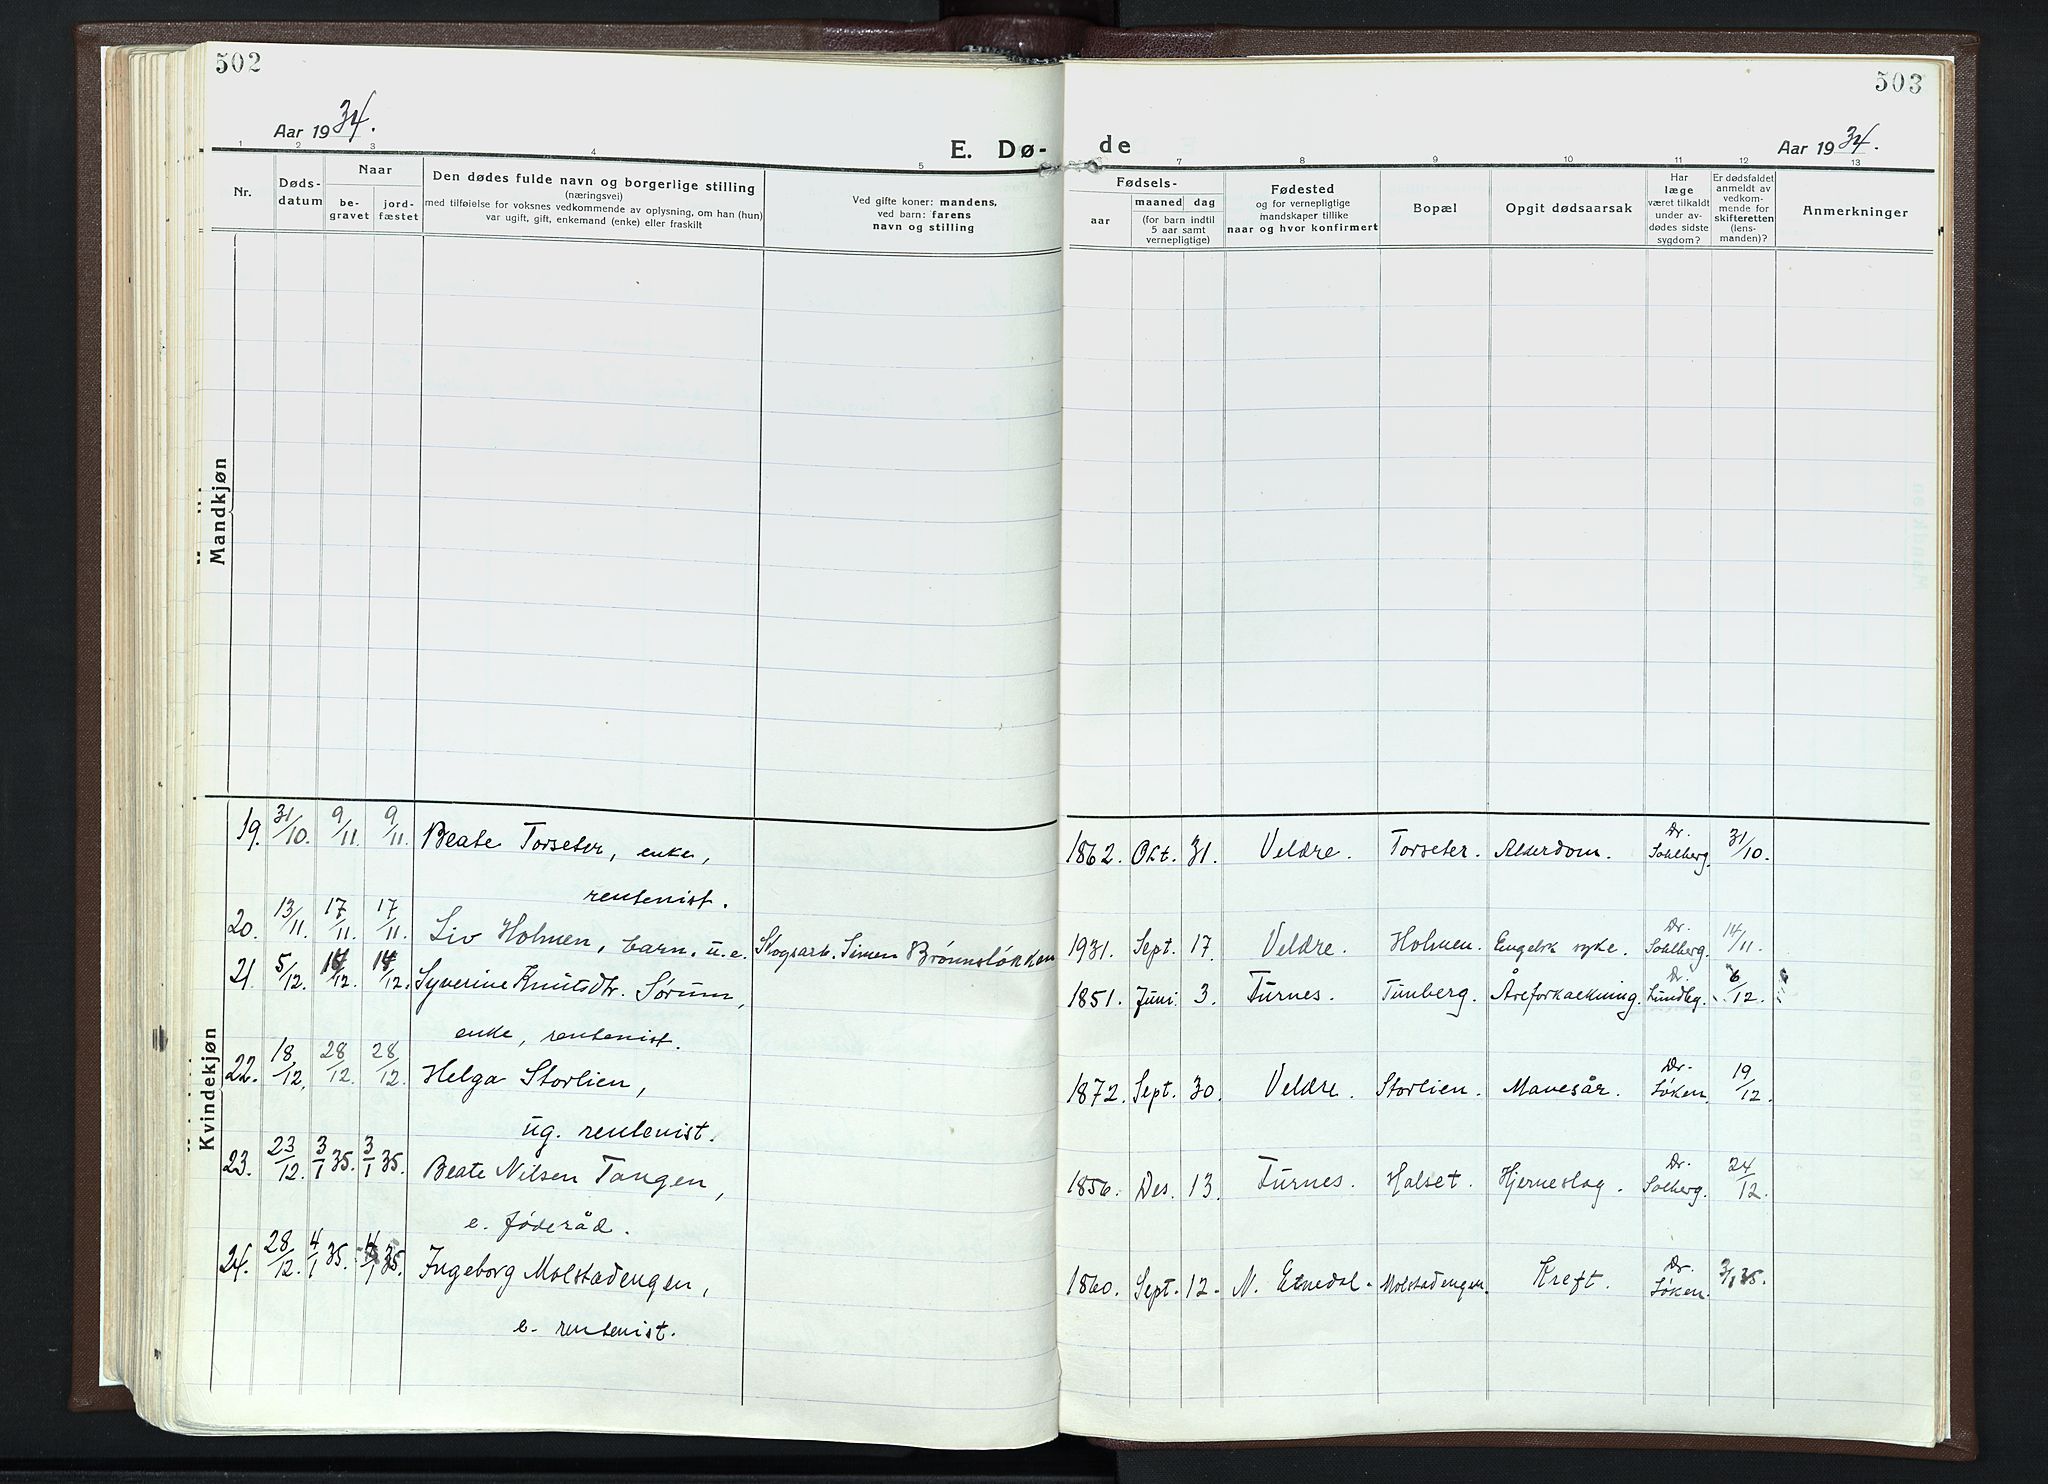 502
Aar 1934.
E. Dø-
1 2 3 4 5
Nr.
Døds-
datum
Naar
be-
gravet
jord-
fæstet
Den dødes fulde navn og borgerlige stilling
(næringsvei)
med tilføielse for voksnes vedkommende av oplysning, om han (hun)
var ugift, gift, enkemand (enke) eller fraskilt
Ved gifte koner: mandens,
ved barn: farens
navn og stilling
Mandkjøn
Kvindekjøn
19. 31/10. 9/11 9/11 Beate Torseter, enke,
rentenist.
20. 13/11. 17/11. 17/11. Liv Holmen, barn. u.e. Skogsarb. Simen Brønnsløkken
21. 5/12. 14/12. 14/12. Syverine Knutsdtr. Sørum,
enke, rentenist.
22. 18/12. 28/12. 28/12. Helga Storlien,
ug. rentenist.
23. 23/12. 3/1 35. 3/1 35. Beate Nilsen Tangen,
e. føderåd.
24. 28/12. 4/1 35. 4/1 35. Ingeborg Molstadengen,
e. rentenist.
503
Aar 1934.
de
7 8 9 10 11 12 13
Fødsels-
aar
maaned dag
(for barn indtil
5 aar samt
vernepligtige)
Fødested
og for vernepligtige
mandskaper tillike
naar og hvor konfirmert
Bopæl
Opgit dødsaarsak
Har
læge
været tilkaldt
under av-
dødes sidste
sygdom?
Er dødsfaldet
anmeldt av
vedkom-
mende for
skifteretten
(lens-
manden)?
Anmerkninger
1862. Okt. 31. Veldre. Torseter. Alderdom. Dr. Sohlberg. 31/10.
1931. Sept. 17. Veldre. Holmen. Engelsk syke. Dr. Sohlberg. 14/11.
1851. Juni 3. Furnes. Tunberg. Åreforkalkning. Dr. Lundbg. 6/12.
1872. Sept. 30. Veldre. Storlien. Mavesår. Dr. Løken. 19/12.
1856. Des. 13. Furnes. Halset. Hjerneslag. Dr. Solberg. 24/12.
1860. Sept. 12. N. Etnedal. Molstadengen. Kreft. Dr. Løken. 3/1 35.